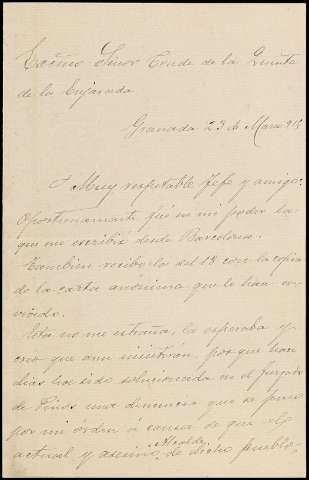 Excmo Señor Conde de la Quinta
de la Enjarada
Granada 23 de Marzo 915
Muy respetable Jefe y amigo:
Oportunamente fué en mi poder la
que me escribió desde Barcelona.
Tambien recibo la del 18 con la copia
de la carta anónima que le han en-
viado.
Esta no me extraña, la esperaba y
creo que aun insistirán, por que han
dias ha sido solucionada en el Juzgado
de Pinos una denuncia que se puso
por mi orden á causa de que el
actual y asesino Alcalde de dicho pueblo,